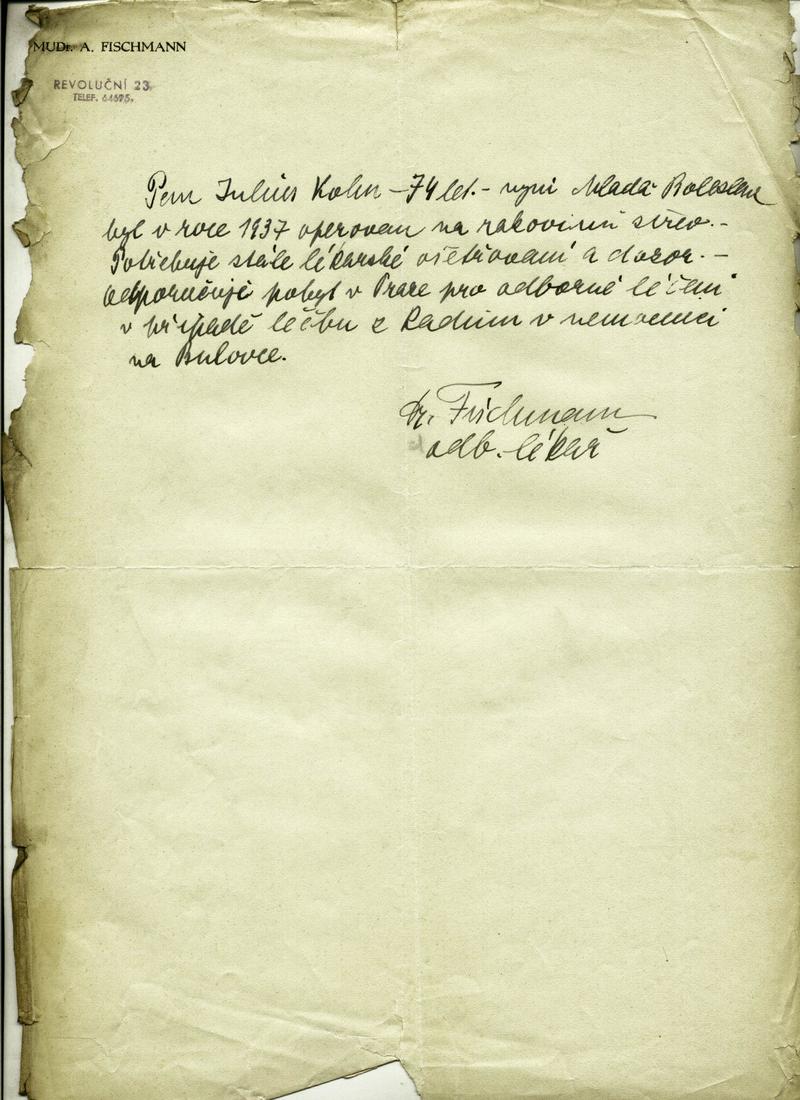 MUDr. A. FISCHMANN
REVOLUČNÍ 23.
TELEF. 64695.
Pan Julius Kohn – 74 let. – nyní Mladá Boleslav
byl v roce 1937 operovan na rakovinu střev. –
Potřebuje stále lékařské ošetřovaní a dozor. –
odporučuji pobyt v Praze pro odborné léčení
v případě léčbu z Radium v nemocnici
na Bulovce.
Dr. Fischmann
odb. lékař